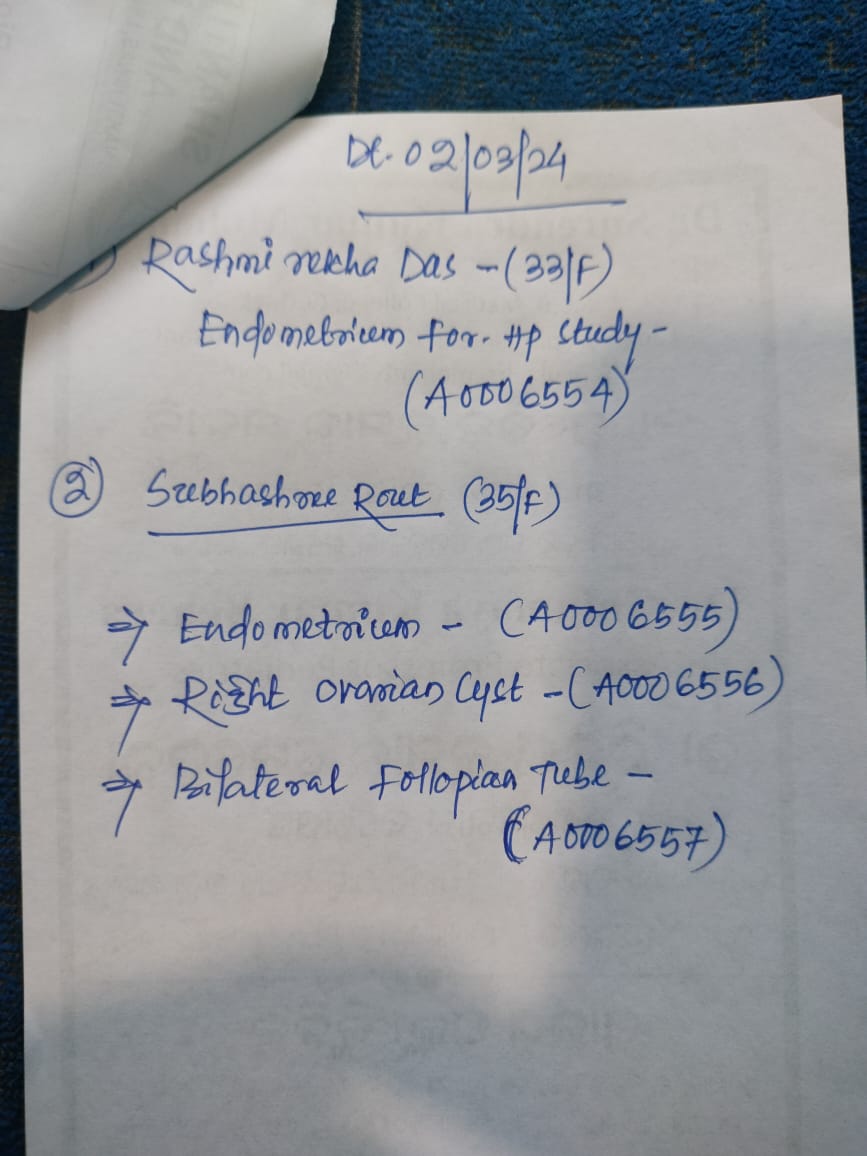 Dt. 02/03/24
1) Rashmi rekha Das - (33/F)
Endometrium for. Hp Study -
(A0006554)
② Subhashree Rout (35/F)
⇒ Endometrium - (A0006555)
⇒ Right Ovarian Cyst - (A0006556)
⇒ Bilateral Follopian Tube -
(A0006557)